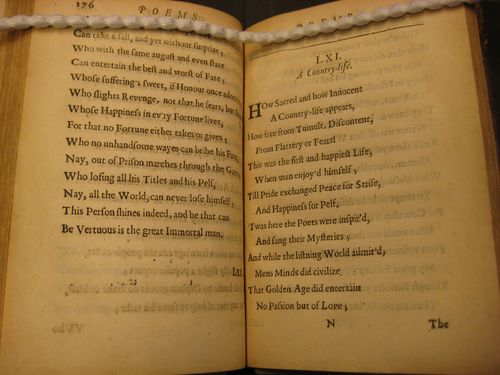 176
POEMS
Can take a fall, and yet without surprize;
Who with the same august and even state
Can entertain the best and worst of Fate;
Whose suffering's sweet, if Honour once adorn
Who slights Revenge, not that he fears, but
Whose Happiness in ev'ry Fortune lives,
For that no Fortune either takes or gives;
Who no unhandsome wayes can bribe his Fate,
Nay, out of Prison marches through the Gate;
Who losing all his Titles and his Pelf,
Nay, all the World, can never lose himself;
This Person shines indeed, and he that can
Be Vertuous is the great Immortal man.
LXI.
POEMS
LXI.
A Country-life.
HOw Sacred and how Innocent
A Country-life appears,
How free from Tumult, Discontent,
From Flattery or Fears!
This was the first and happiest Life,
When man enjoy'd himself;
Till Pride exchanged Peace for Strife,
And Happiness for Pelf.
'Twas here the Poets were inspir'd,
And sang their Mysteries;
And while the listning World admir'd,
Mens Minds did civilize.
That Golden Age did entertain
No Passion but of Love;
N
The